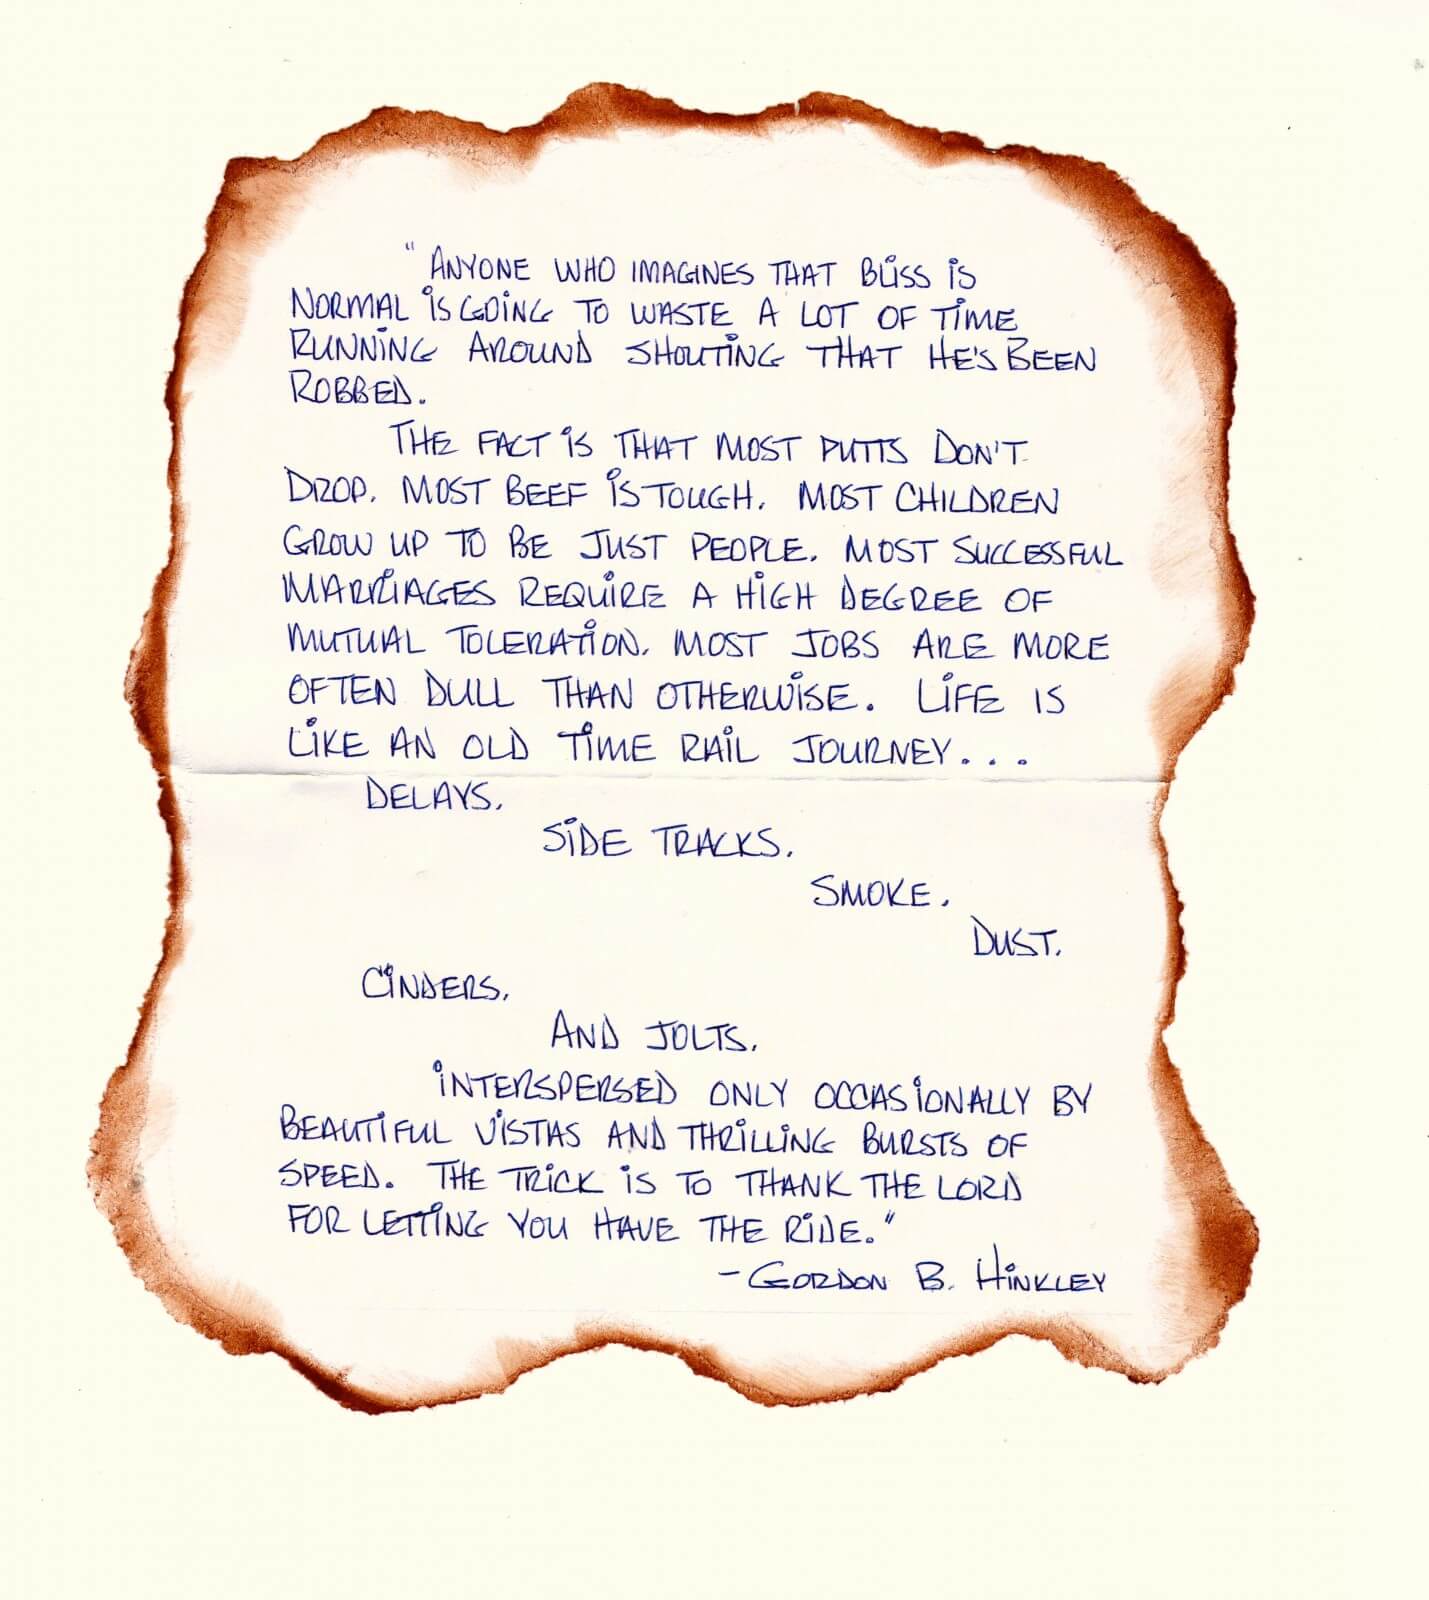 "ANYONE WHO IMAGINES THAT BLISS IS
NORMAL IS GOING TO WASTE A LOT OF TIME
RUNNING AROUND SHOUTING THAT HE'S BEEN
ROBBED.
THE FACT IS THAT MOST PUTTS DON'T
DROP. MOST BEEF IS TOUGH. MOST CHILDREN
GROW UP TO BE JUST PEOPLE. MOST SUCCESSFUL
MARRIAGES REQUIRE A HIGH DEGREE OF
MUTUAL TOLERATION. MOST JOBS ARE MORE
OFTEN DULL THAN OTHERWISE. LIFE IS
LIKE AN OLD TIME RAIL JOURNEY...
DELAYS.
SIDE TRACKS.
SMOKE.
DUST.
CINDERS.
AND JOLTS.
INTERSPERSED ONLY OCCASIONALLY BY
BEAUTIFUL VISTAS AND THRILLING BURSTS OF
SPEED. THE TRICK IS TO THANK THE LORD
FOR LETTING YOU HAVE THE RIDE."
- GORDON B. HINKLEY